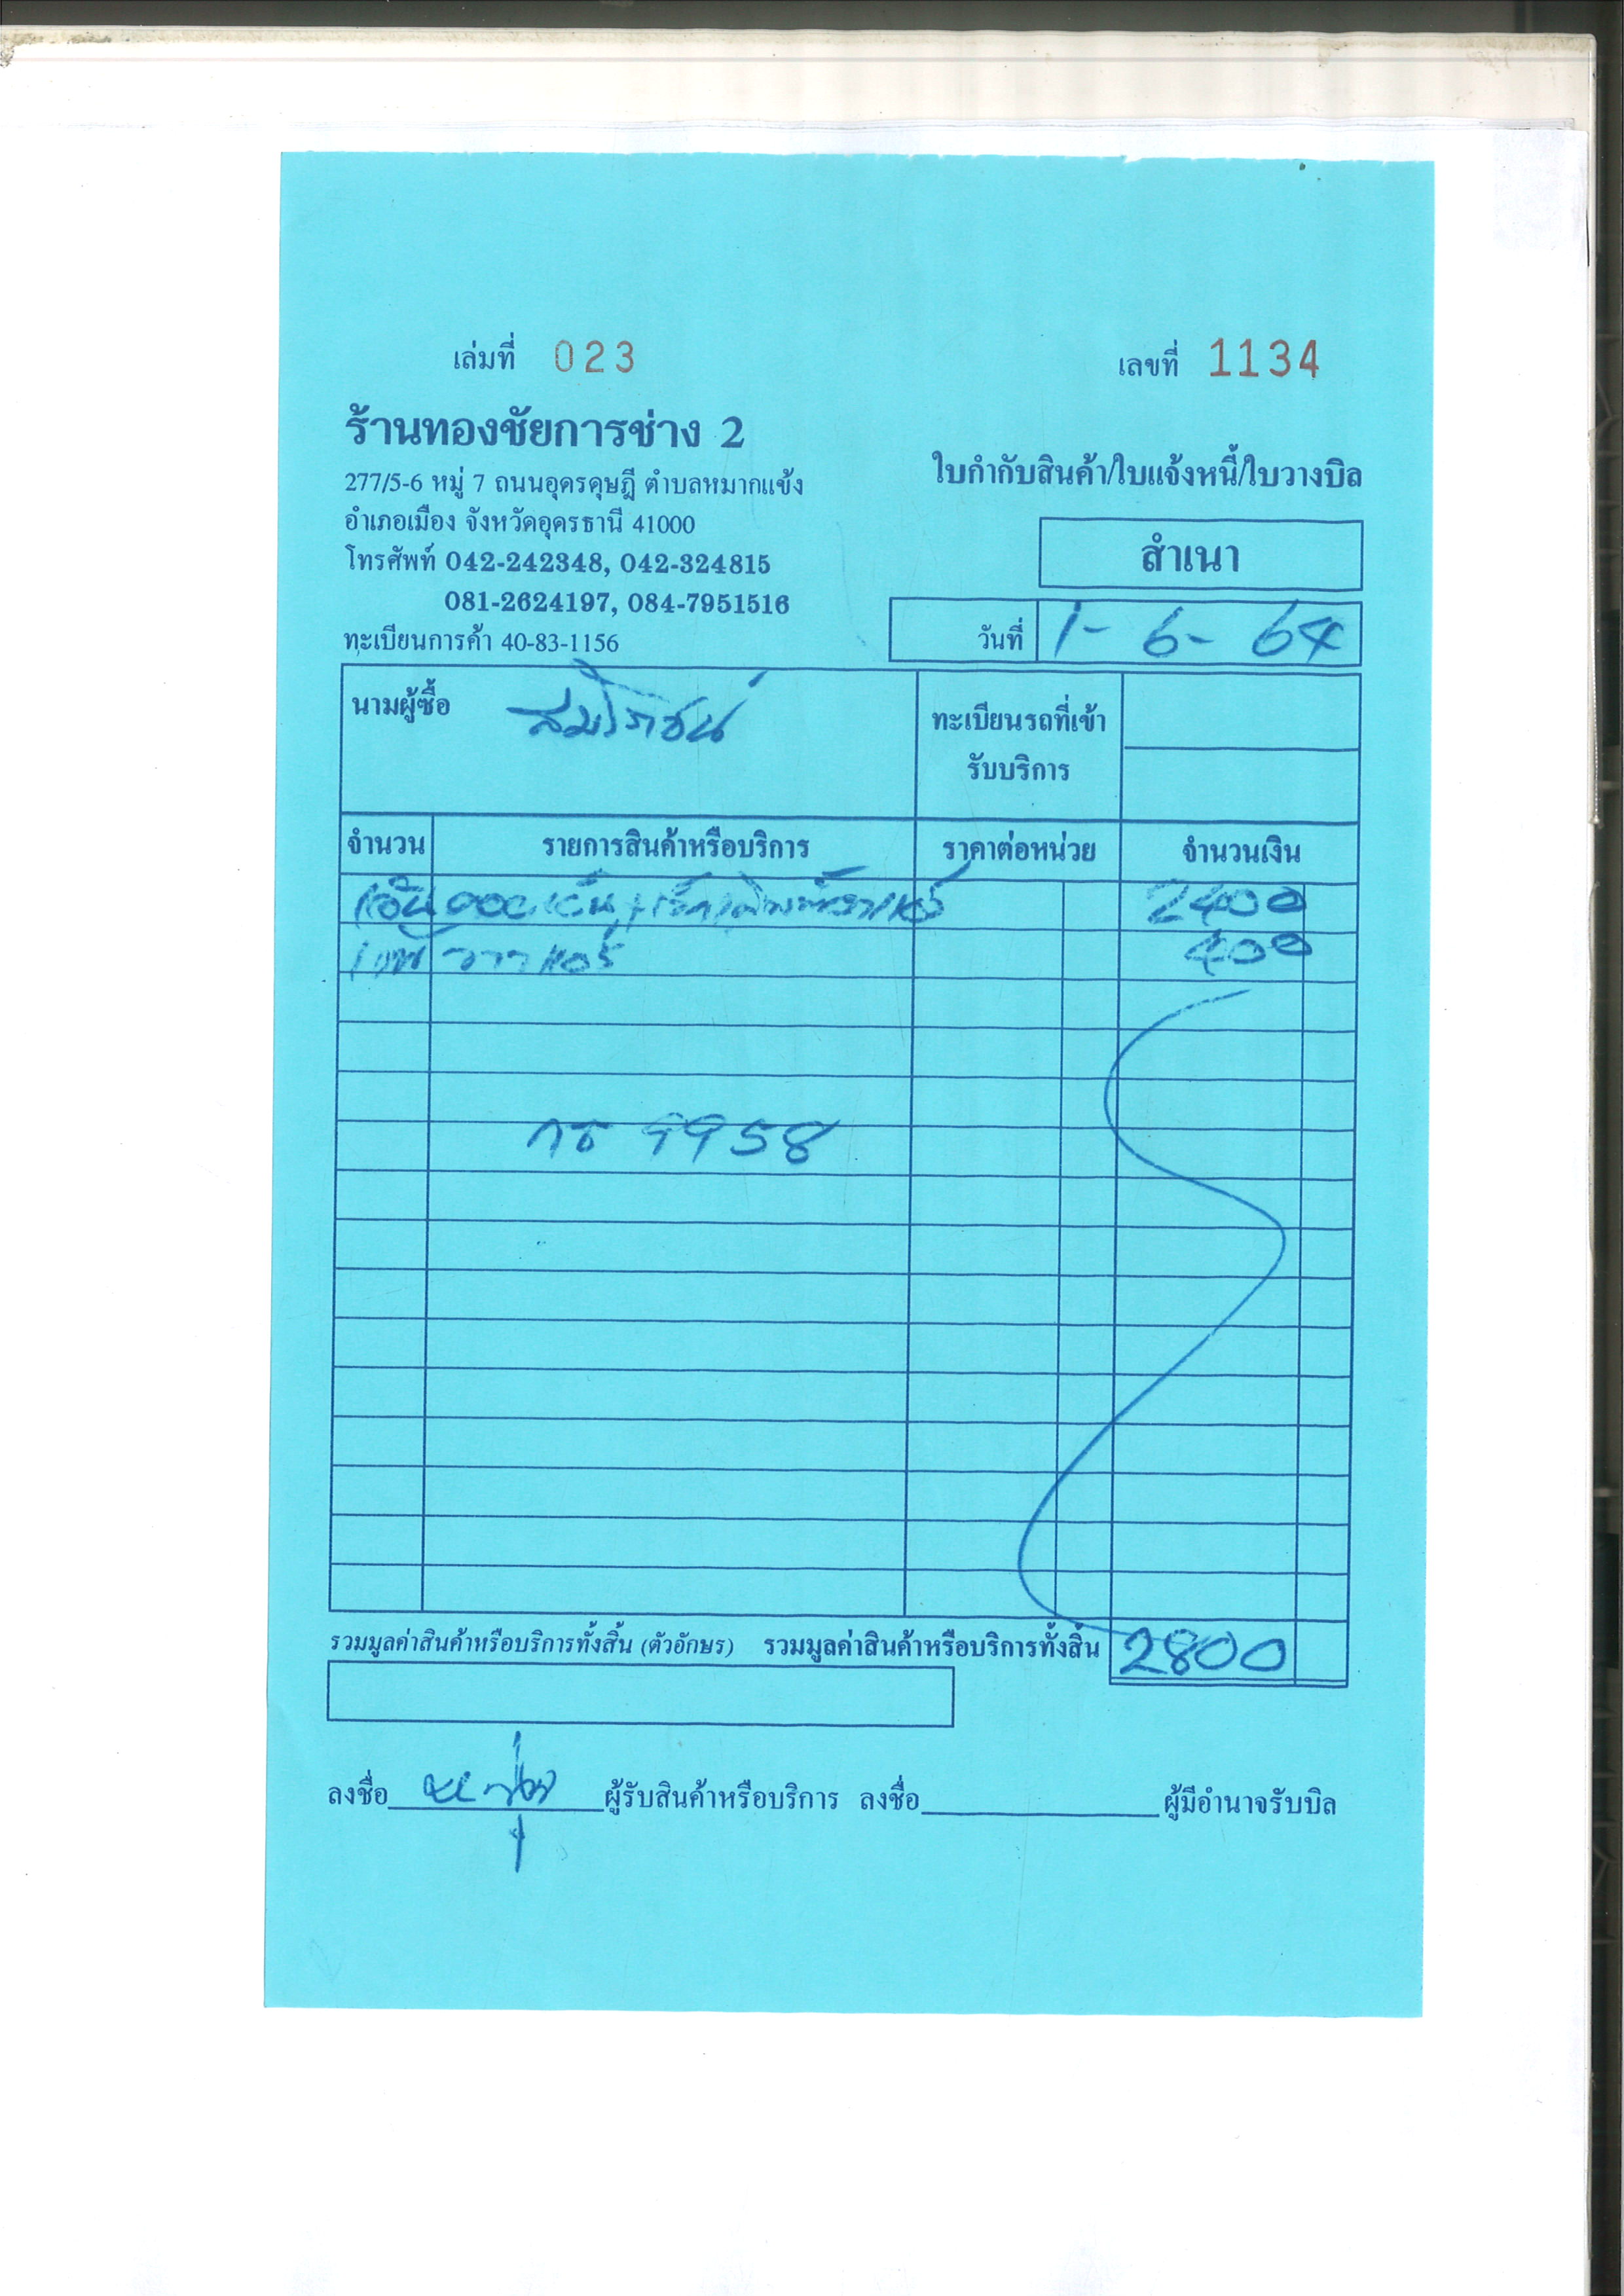 เล่มที่ 023 เลขที่ 1134
ร้านทองชัยการช่าง 2
277/5-6 หมู่ 7 ถนนอุดรดุษฎี ตำบลหมากแข้ง
อำเภอเมือง จังหวัดอุดรธานี 41000
โทรศัพท์ 042-242348, 042-324815
081-2624197, 084-7951516
ทะเบียนการค้า 40-83-1156
ใบกำกับสินค้า/ใบแจ้งหนี้/ใบวางบิล
สำเนา
วันที่ 1-6-64
นามผู้ซื้อ
ทะเบียนรถที่เข้า
รับบริการ
จำนวน รายการสินค้าหรือบริการ ราคาต่อหน่วย จำนวนเงิน
2400
400
9958
รวมมูลค่าสินค้าหรือบริการทั้งสิ้น (ตัวอักษร) รวมมูลค่าสินค้าหรือบริการทั้งสิ้น 2800
ลงชื่อ ผู้รับสินค้าหรือบริการ ลงชื่อ ผู้มีอำนาจรับบิล